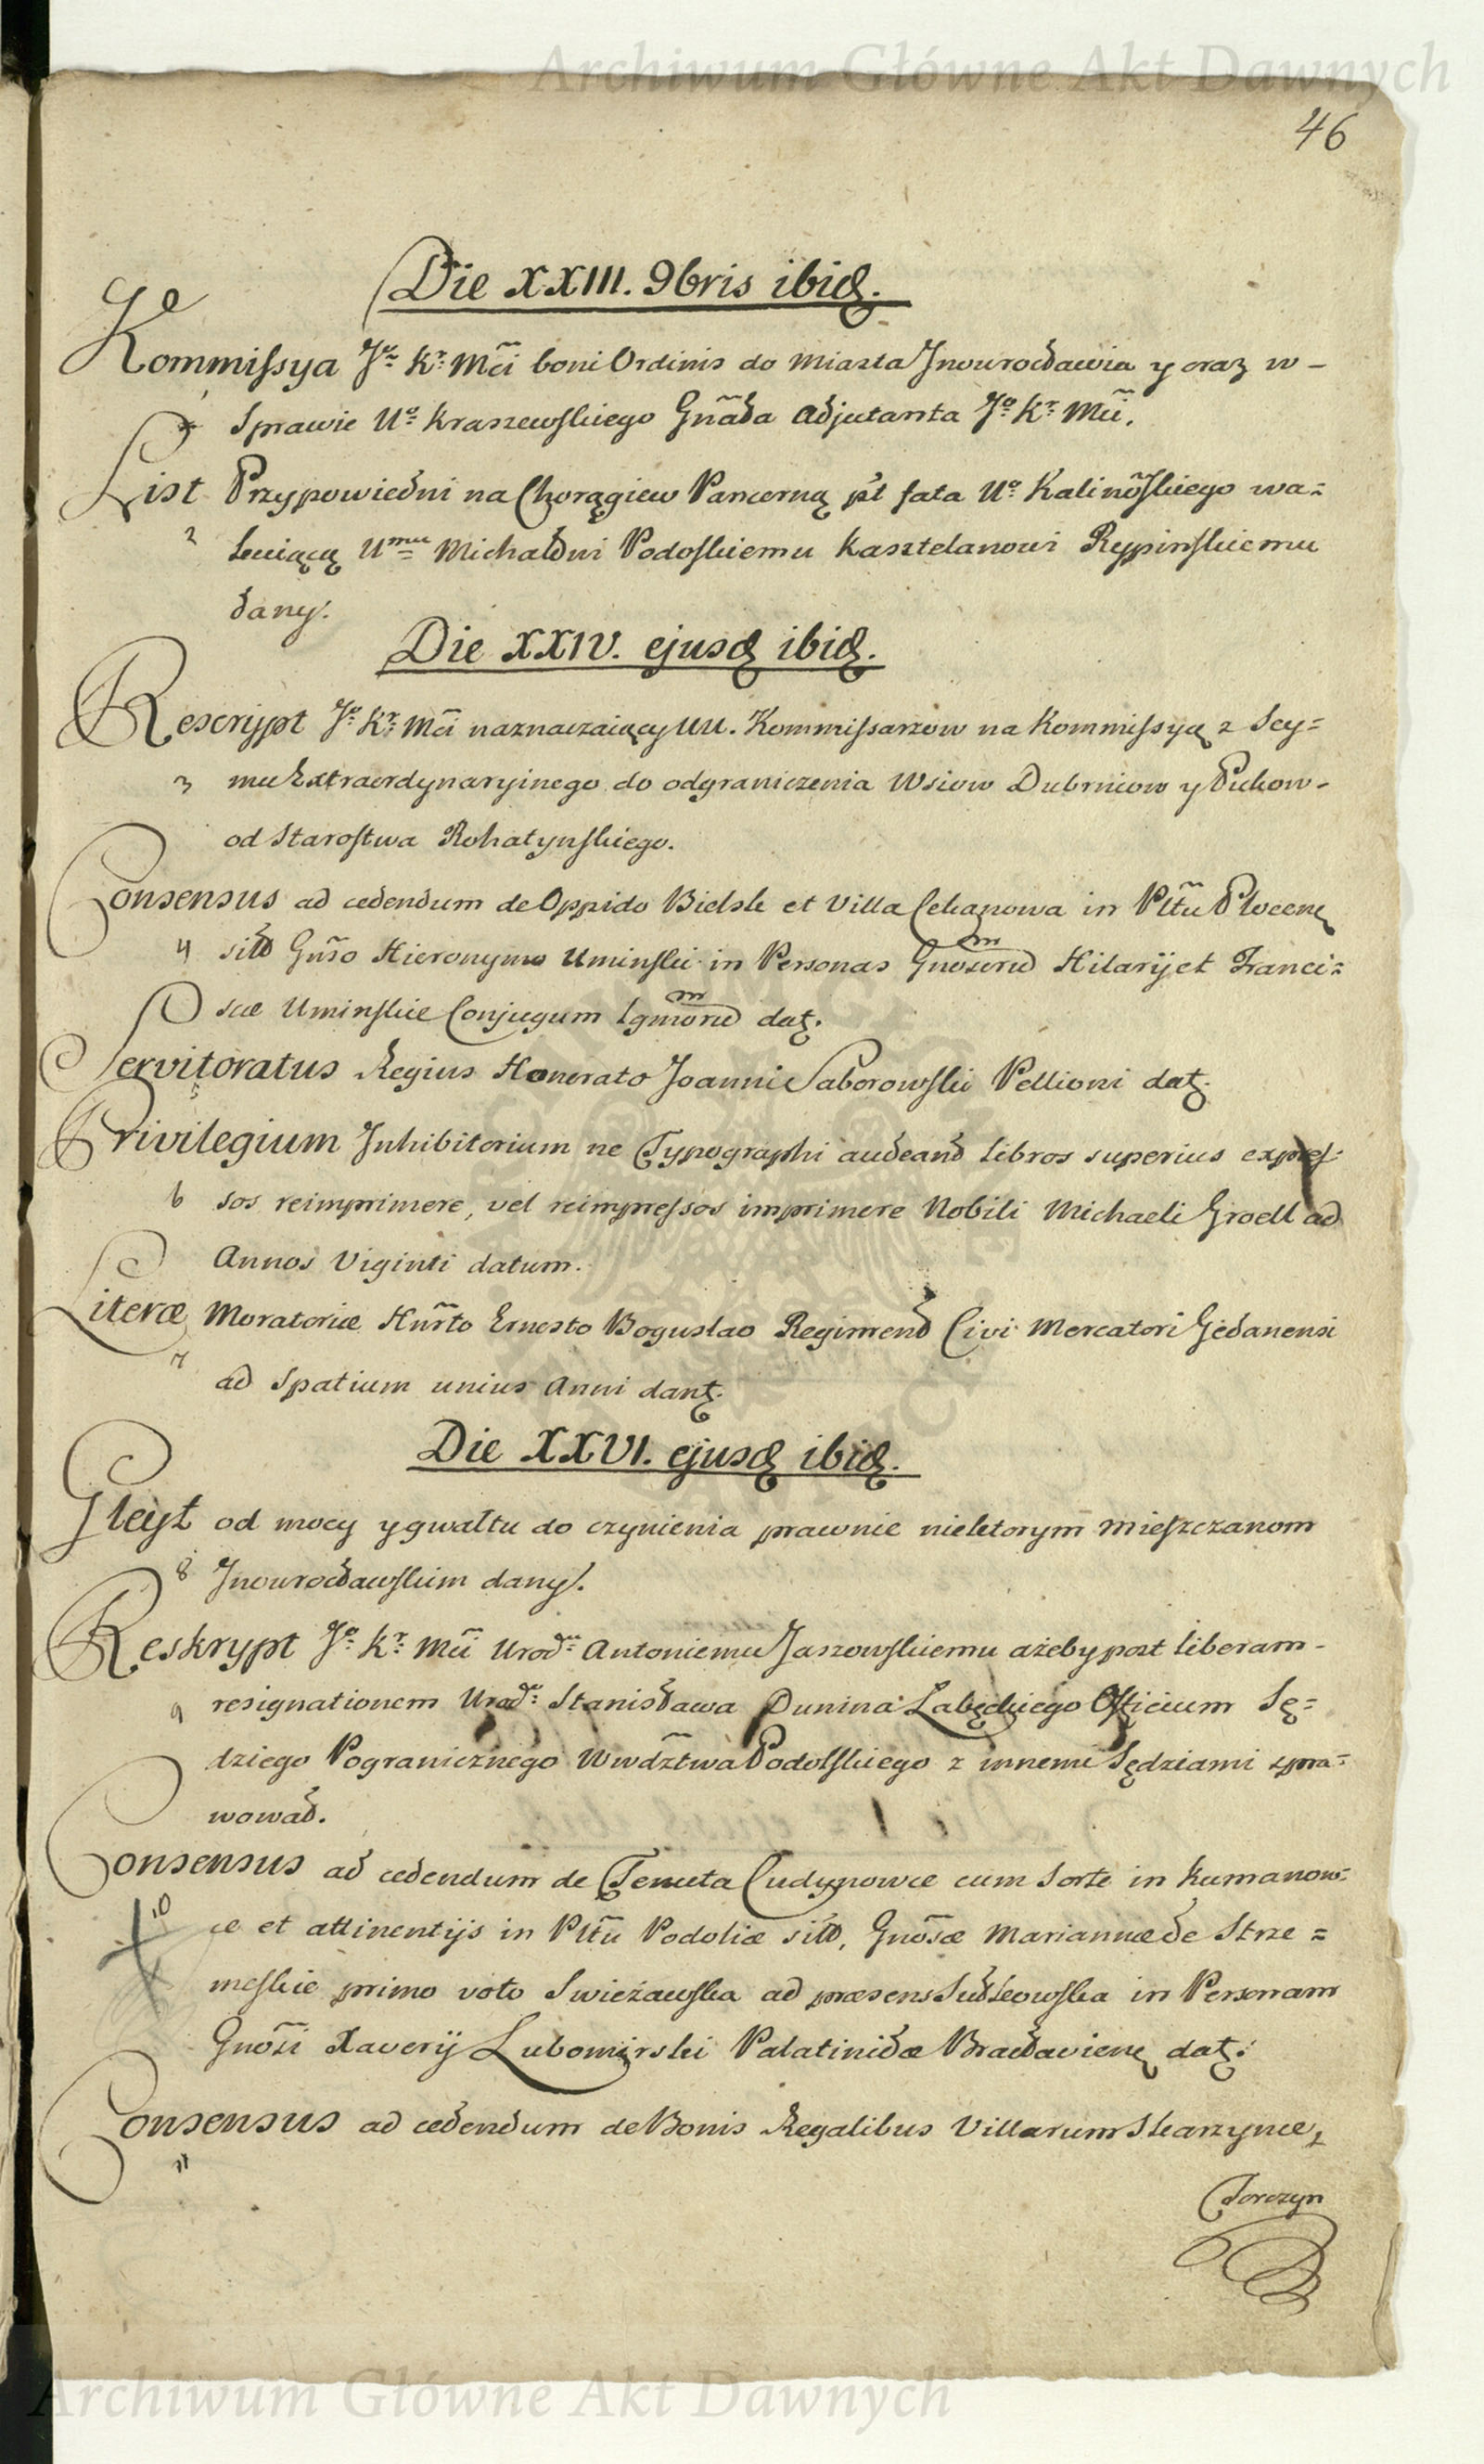 Archiwum Główne Akt Dawnych
46
Die XXIII. 9bris ibid.
Kommissya Jo Kr Mci boni Ordinis do Miasta Inowrocławia y oraz w -
1 Sprawie Uo Kraszewskiego Gnała Adjutanta Jo Kr Mci.
List Przypowiedni na Chorągiew Pancerną pt fata Uo Kalinoskiego wa=
2 kuiącą Umu Michałowi Podoskiemu Kasztelanowi Rypinskiemu
dany.
Die XXIV. ejusd ibid.
Rescrypt Jo Kr Mci naznaczaiący UU. Kommissarzow na Kommissyą z Sey=
3 mu Extraordynaryinego do odgraniczenia Wsiow Dubrniow y Pukow -
od Starostwa Rohatynskiego.
Consensus ad cedendum de Oppido Bielsk et Villa Cekanowa in Pltu Plocen
4 sit Gnso Hieronymo Uminski in Personas Gnosorum Hilarij et Franci=
scæ Uminskie Conjugum Igmorum dat.
Servitoratus Regius Honorato Joanni Saborowski Pellioni dat.
5
Privilegium Inhibitorium ne Typographi audeand libros superius expres-
6 sos reimprimere, vel reimpressos imprimere Nobili Michaeli Groell ad
Annos Viginti datum.
Literæ Moratoriæ Hnrto Ernesto Boguslao Regimend Civi Mercatori Gedanensi
7
ad Spatium unius Anni dant.
Die XXVI. ejusd ibid.
Gleyt od mocy y gwałtu do czynienia prawnie niektorym Mieszczanom
8 Inowrocławskim dany.
Reskrypt Jo Kr Mci Urod Antoniemu Jaszowskiemu ażeby post liberam -
9 resignationem Urod Stanisława Dunina Łabędzkiego Officium Sę=
dziego Pogranicznego Wwdztwa Podolskiego z innemi Sędziami spra=
wował.
Consensus ad cedendum de Tenuta Cudynowce cum Sorte in Kumanow=
10 ce et attinentijs in Pltu Podoliæ sit, Gnosæ Mariannæ de Strze=
meskie primo voto Swieżawska ad præsens Sulkowska in Personam
Gnosi Xaverij Lubomirski Palatinidæ Bracłavien dat.
Consensus ad cedendum de Bonis Regalibus Villarum Skarzynce,
11
Torczyn
Archiwum Główne Akt Dawnych